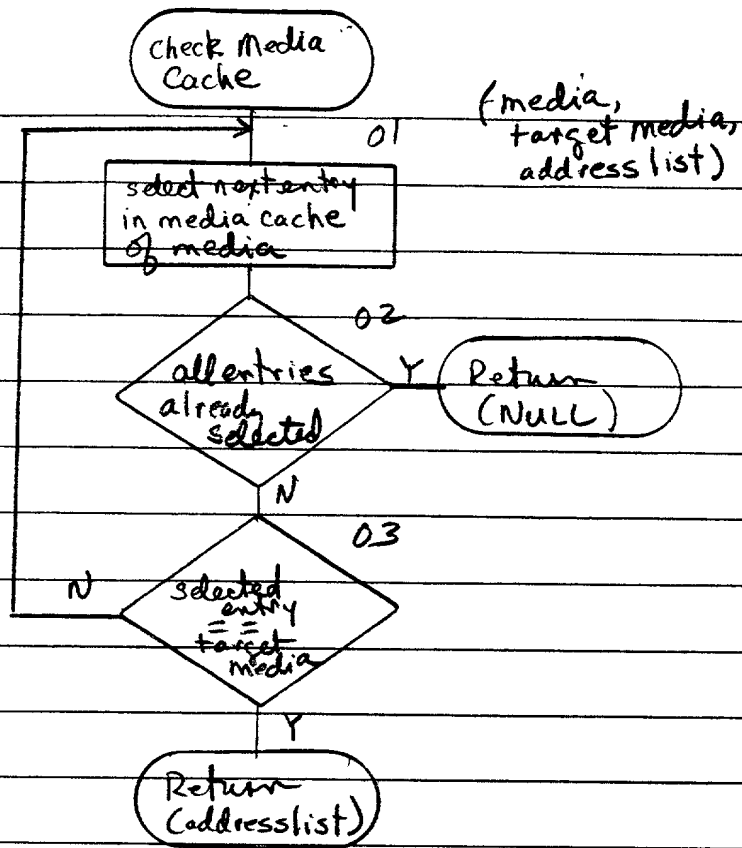 check Media
Cache
01
(media,
target media,
address list)
select next entry
in media cache
of media
02
all entries
already
selected
Y
Return
(NULL)
N
03
N
selected
entry
==
target
media
Y
Return
(addresslist)